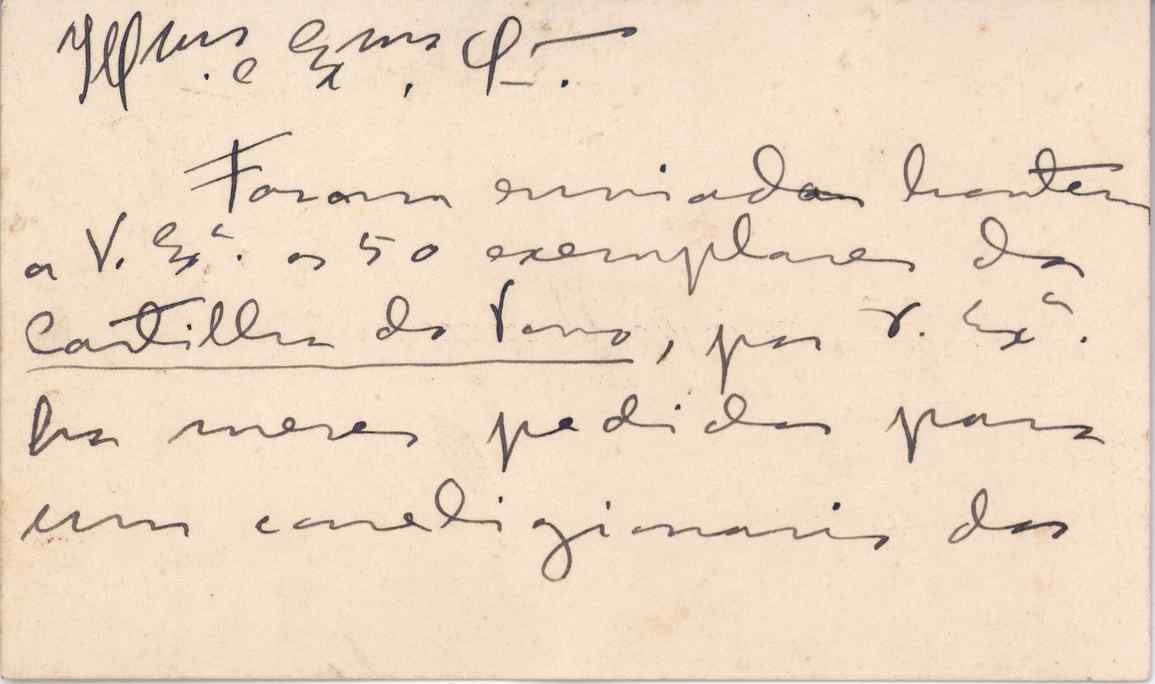 Illmo. e Exmo. Sr.
Foram enviados hontem
a V. Exª. os 50 exemplares da
Cartilha do Povo, por V. Exª.
ha meses pedidos para
um correligionario das